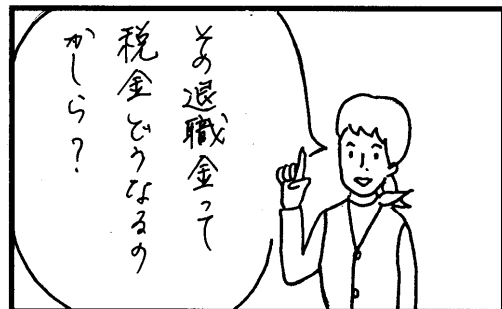 その退職金って
税金どうなるの
かしら？